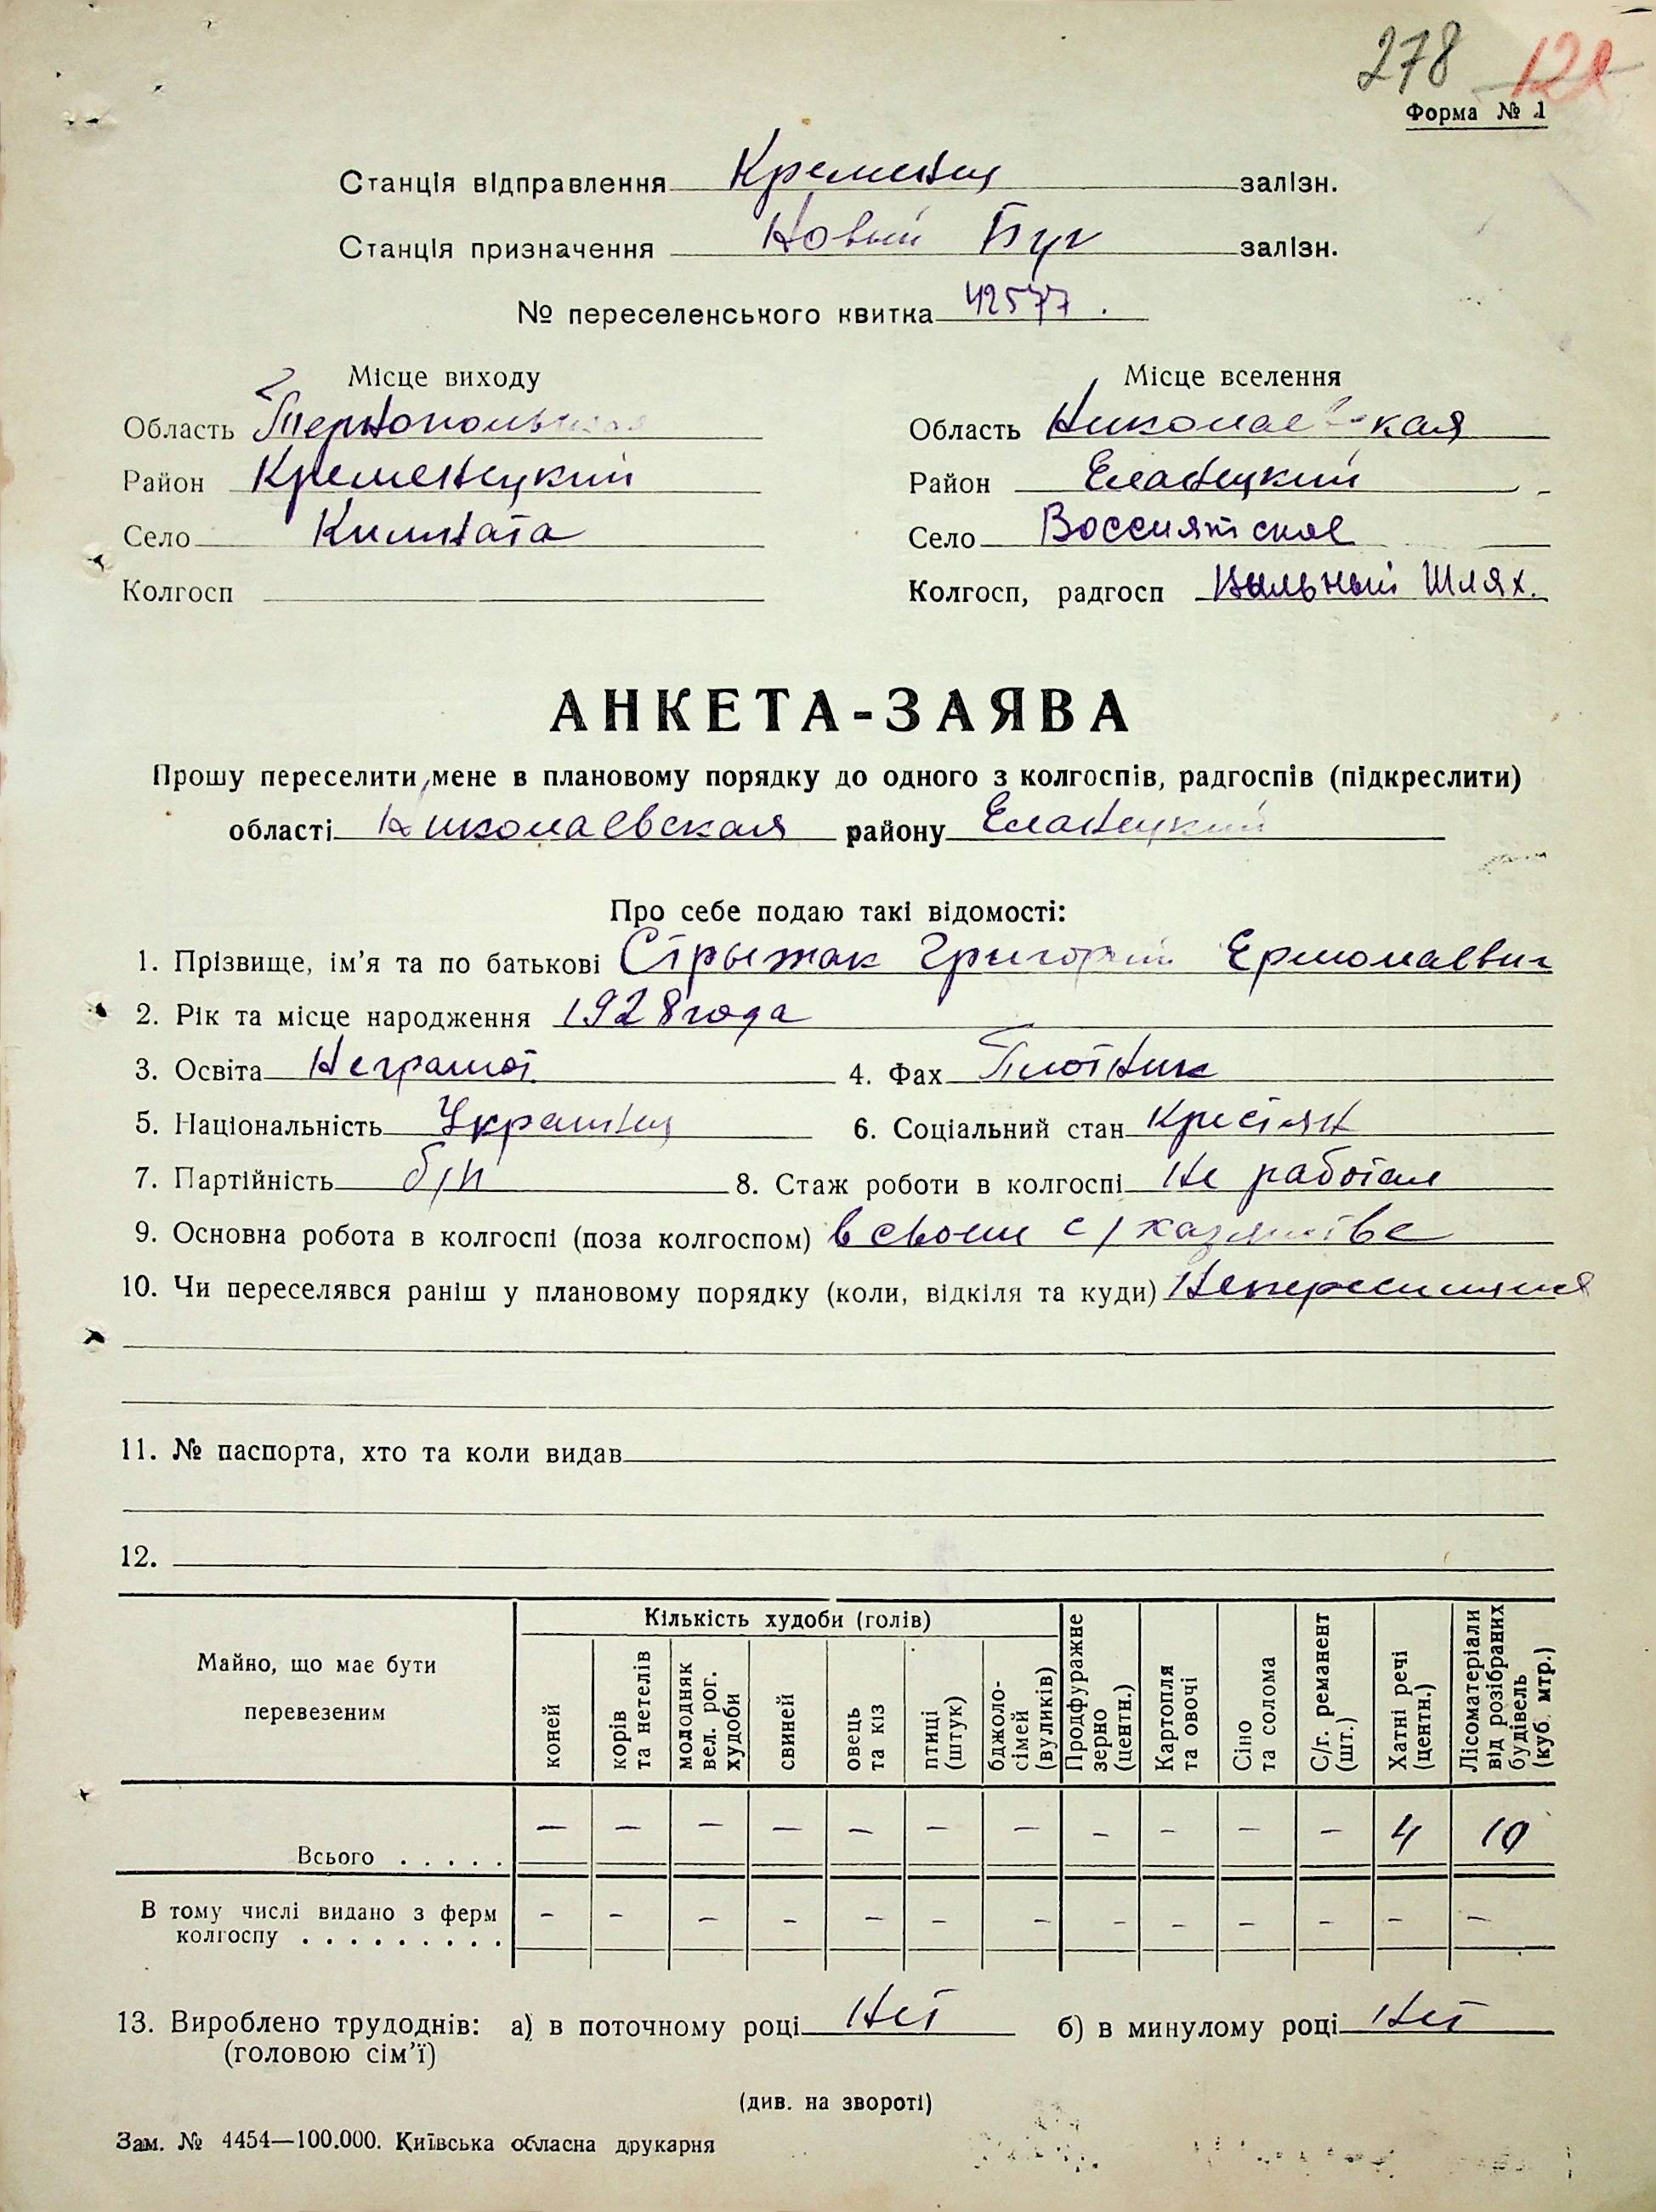 278 121
Форма № 1
Станція відправлення Кременец залізн.
Станція призначення Новый Буг залізн.
№ переселенського квитка 42577.
Місце виходу Місце вселення
Область Тернопольская Область Николаевская
Район Кременецкий Район Еланецкий
Село Кимната Село Воссиятское
Колгосп Колгосп, радгосп Вильный Шлях.
АНКЕТА-ЗАЯВА
Прошу переселити мене в плановому порядку до одного з колгоспів, радгоспів (підкреслити)
області Николаевская району Еланецкий
Про себе подаю такі відомості:
1. Прізвище, ім'я та по батькові Стрыжак Григорий Ермолаевич
2. Рік та місце народження 1928 года
3. Освіта Неграмот 4. Фах Плотник
5. Національність Украинец 6. Соціальний стан Крестян
7. Партійність б/п 8. Стаж роботи в колгоспі Не работал
9. Основна робота в колгоспі (поза колгоспом) в своем с/хазяистве
10. Чи переселявся раніш у плановому порядку (коли, відкіля та куди)
11. № паспорта, хто та коли видав
12.
Майно, що має бути перевезеним
Кількість худоби (голів)
коней
корів та нетелів
молодняк вел. рог. худоби
свиней
овець та кіз
птиці (штук)
бджоло-сімей (вуликів)
Продфуражне зерно (центн.)
Картопля та овочі
Сіно та солома
С/г. реманент (шт.)
Хатні речі (центн.)
Лісоматеріали від розібраних будівель (куб. мтр.)
Всього . . . . . — — — — — — — — — — — 4 10
В тому числі видано з ферм
колгоспу . . . . . . . . . — — — — — — — — — — — — —
13. Вироблено трудоднів: а) в поточному році Нет б) в минулому році Нет
(головою сім'ї)
(див. на звороті)
Зам. № 4454—100.000. Київська обласна друкарня